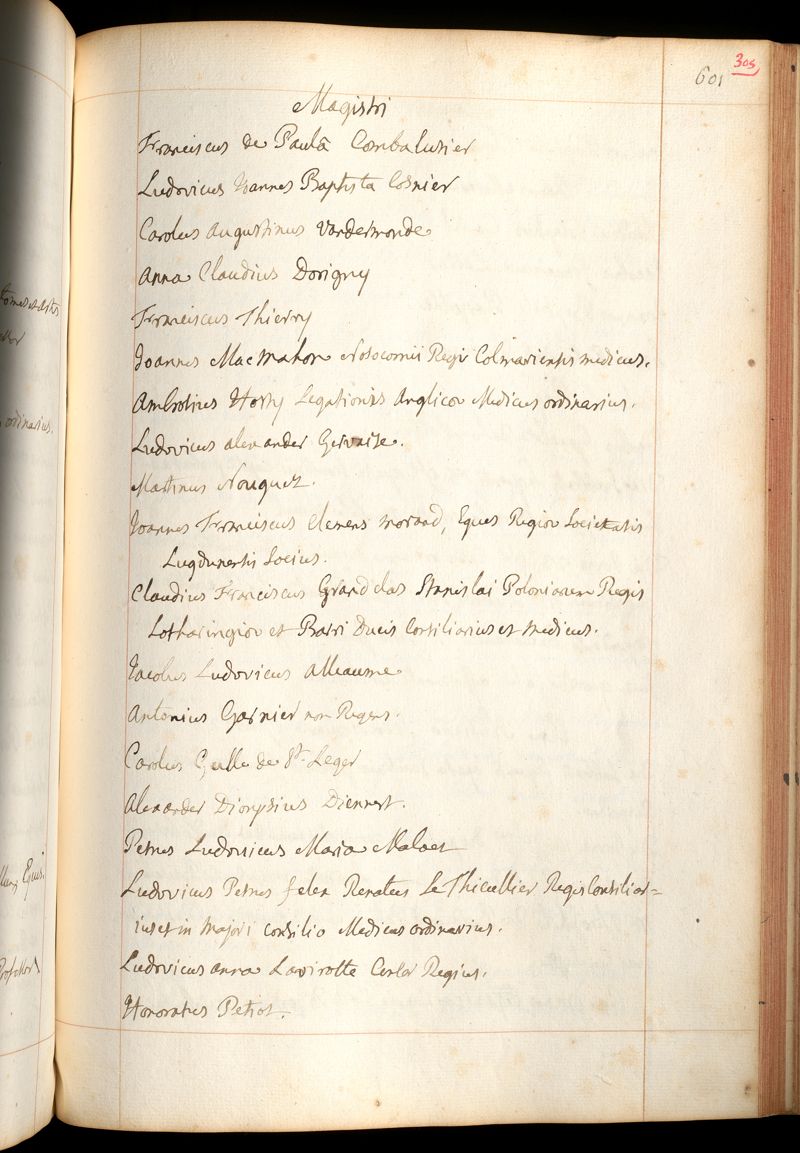 601
303
Magistri
Franciscus de Paulâ Combalusier
Ludovicus Joannes Baptista Cosnier
Carolus Augustinus Vandermonde
Anna Claudius Dorigny
Franciscus Thierry
Joannes MacMahon Nosocomii Regii Colmariensis medicus.
Ambrosius Hosty Legationis Anglicæ Medicus ordinarius.
Ludovicus alexander Gervaise.
Martinus Nouguez.
Joannes Franciscus Clemens morand, Eques Regiæ Societatis
Lugdunensis Socius.
Claudius Franciscus Grandclas Stanislai Poloniarum Regis
Lotharingiæ et Barri Ducis Consiliarius et medicus.
Jacobus Ludovicus alleaume
Antonius Garnier non Regens.
Carolus Gille de St. Leger
Alexander Dionysius Diennert.
Petrus Ludovicus Maria Maloet
Ludovicus Petrus felix Renatus Le Thieullier Regis Consiliar=
ius et in Majori consilio Medicus ordinarius.
Ludovicus anna Lavirotte Censor Regius.
Honoratus Petiot.
ordinarius.
Eques
Professor